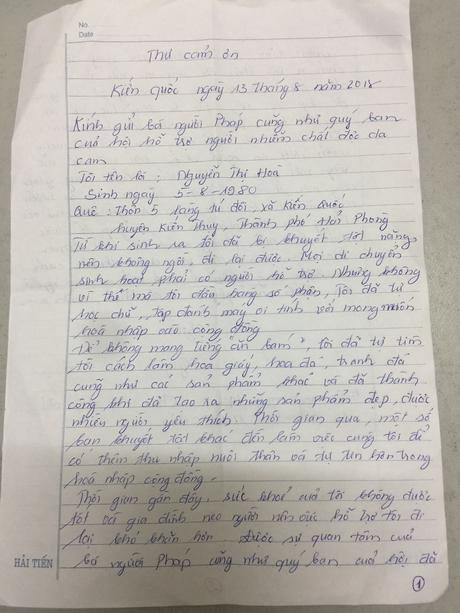 No.
Date
Thư cảm ơn
Kiến quốc ngày 13 tháng 8 năm 2018
Kính gửi bá người Pháp cũng như quý ban
của hội hỗ trợ người nhiễm chất độc da
cam
Tôi tên là : Nguyễn Thị Hoà
Sinh ngày 5-8-1980
Quê : Thôn 5 làng tú đôi, xã Kiến Quốc
huyện Kiến Thụy, Thành phố Hải Phòng
Từ khi sinh ra tôi đã bị khuyết tật nặng
nên không ngồi, đi lại được. Mọi di chuyển
sinh hoạt phải có người hỗ trợ. Nhưng không
vì thế mà tôi đầu hàng số phận, Tôi đã tự
học chữ, tập đánh máy vi tính với mong muốn
hoà nhập vào công đồng
Để không mang tiếng "ăn bám", tôi đã tự tìm
tòi cách làm hoa giấy, hoa đá, tranh đá
cũng như các sản phẩm khác và đã thành
công khi đã tạo ra những sản phẩm đẹp, được
nhiều người yêu thích. Thời gian qua, một số
bạn khuyết tật khác đến làm việc cùng tôi để
có thêm thu nhập nuôi thân và tự tin hơn trong
hoà nhập cộng đồng.
Thời gian gần đây, sức khoẻ của tôi không được
tốt và gia đình neo người nên việc hỗ trợ tôi đi
lại khó khăn hơn. Được sự quan tâm của
bá người Pháp cũng như quý ban của hội đã
HẢI TIẾN
1